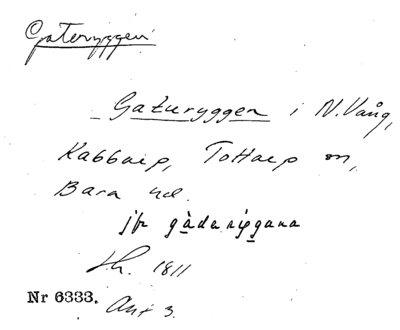 Gateryggen
Gaturyggen i N. Vång,
Kabbarp, Tottarp sn,
Bara hd.
jfr gàdurỳggana
Sh. 1811
Nr 6333. Akt 3.